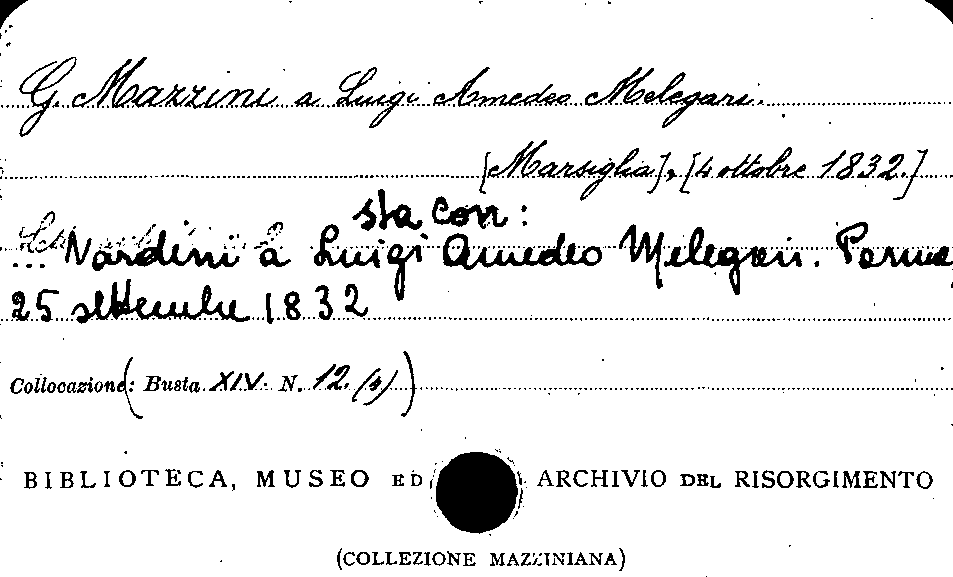 G. Mazzini a Luigi Amedeo Melegari.
[Marsiglia], [4 ottobre 1832.]
sta con:
... Nardini a Luigi Amedeo Melegari. Parma
25 settembre 1832
Collocazione: (Busta XIV. N. 12. (4).)
BIBLIOTECA, MUSEO ED ARCHIVIO DEL RISORGIMENTO
(COLLEZIONE MAZZINIANA)